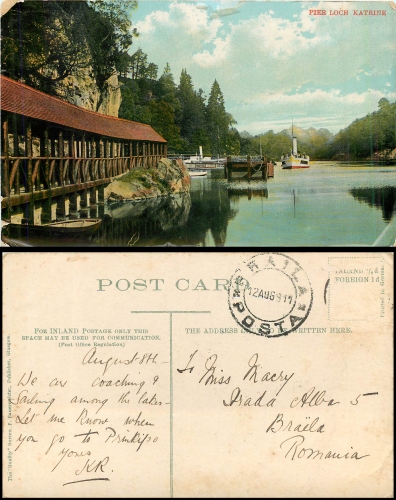 PIER LOCH KATRINE
POST CARD
BRAILA
12 AUG 911
POSTA
INLAND ½d.
FOREIGN 1d.
Printed in
FOR INLAND POSTAGE ONLY THIS
SPACE MAY BE USED FOR COMMUNICATION.
(Post Office Regulation)
THE ADDRESS WRITTEN HERE.
August 8th
We are coaching &
Sailing among the lakes
Let me know when
you go to Prinkipo
yours
KR.
To Miss Macry
Strada Alba 5
Braïla
Romania
Series, Publisher, Glasgow.